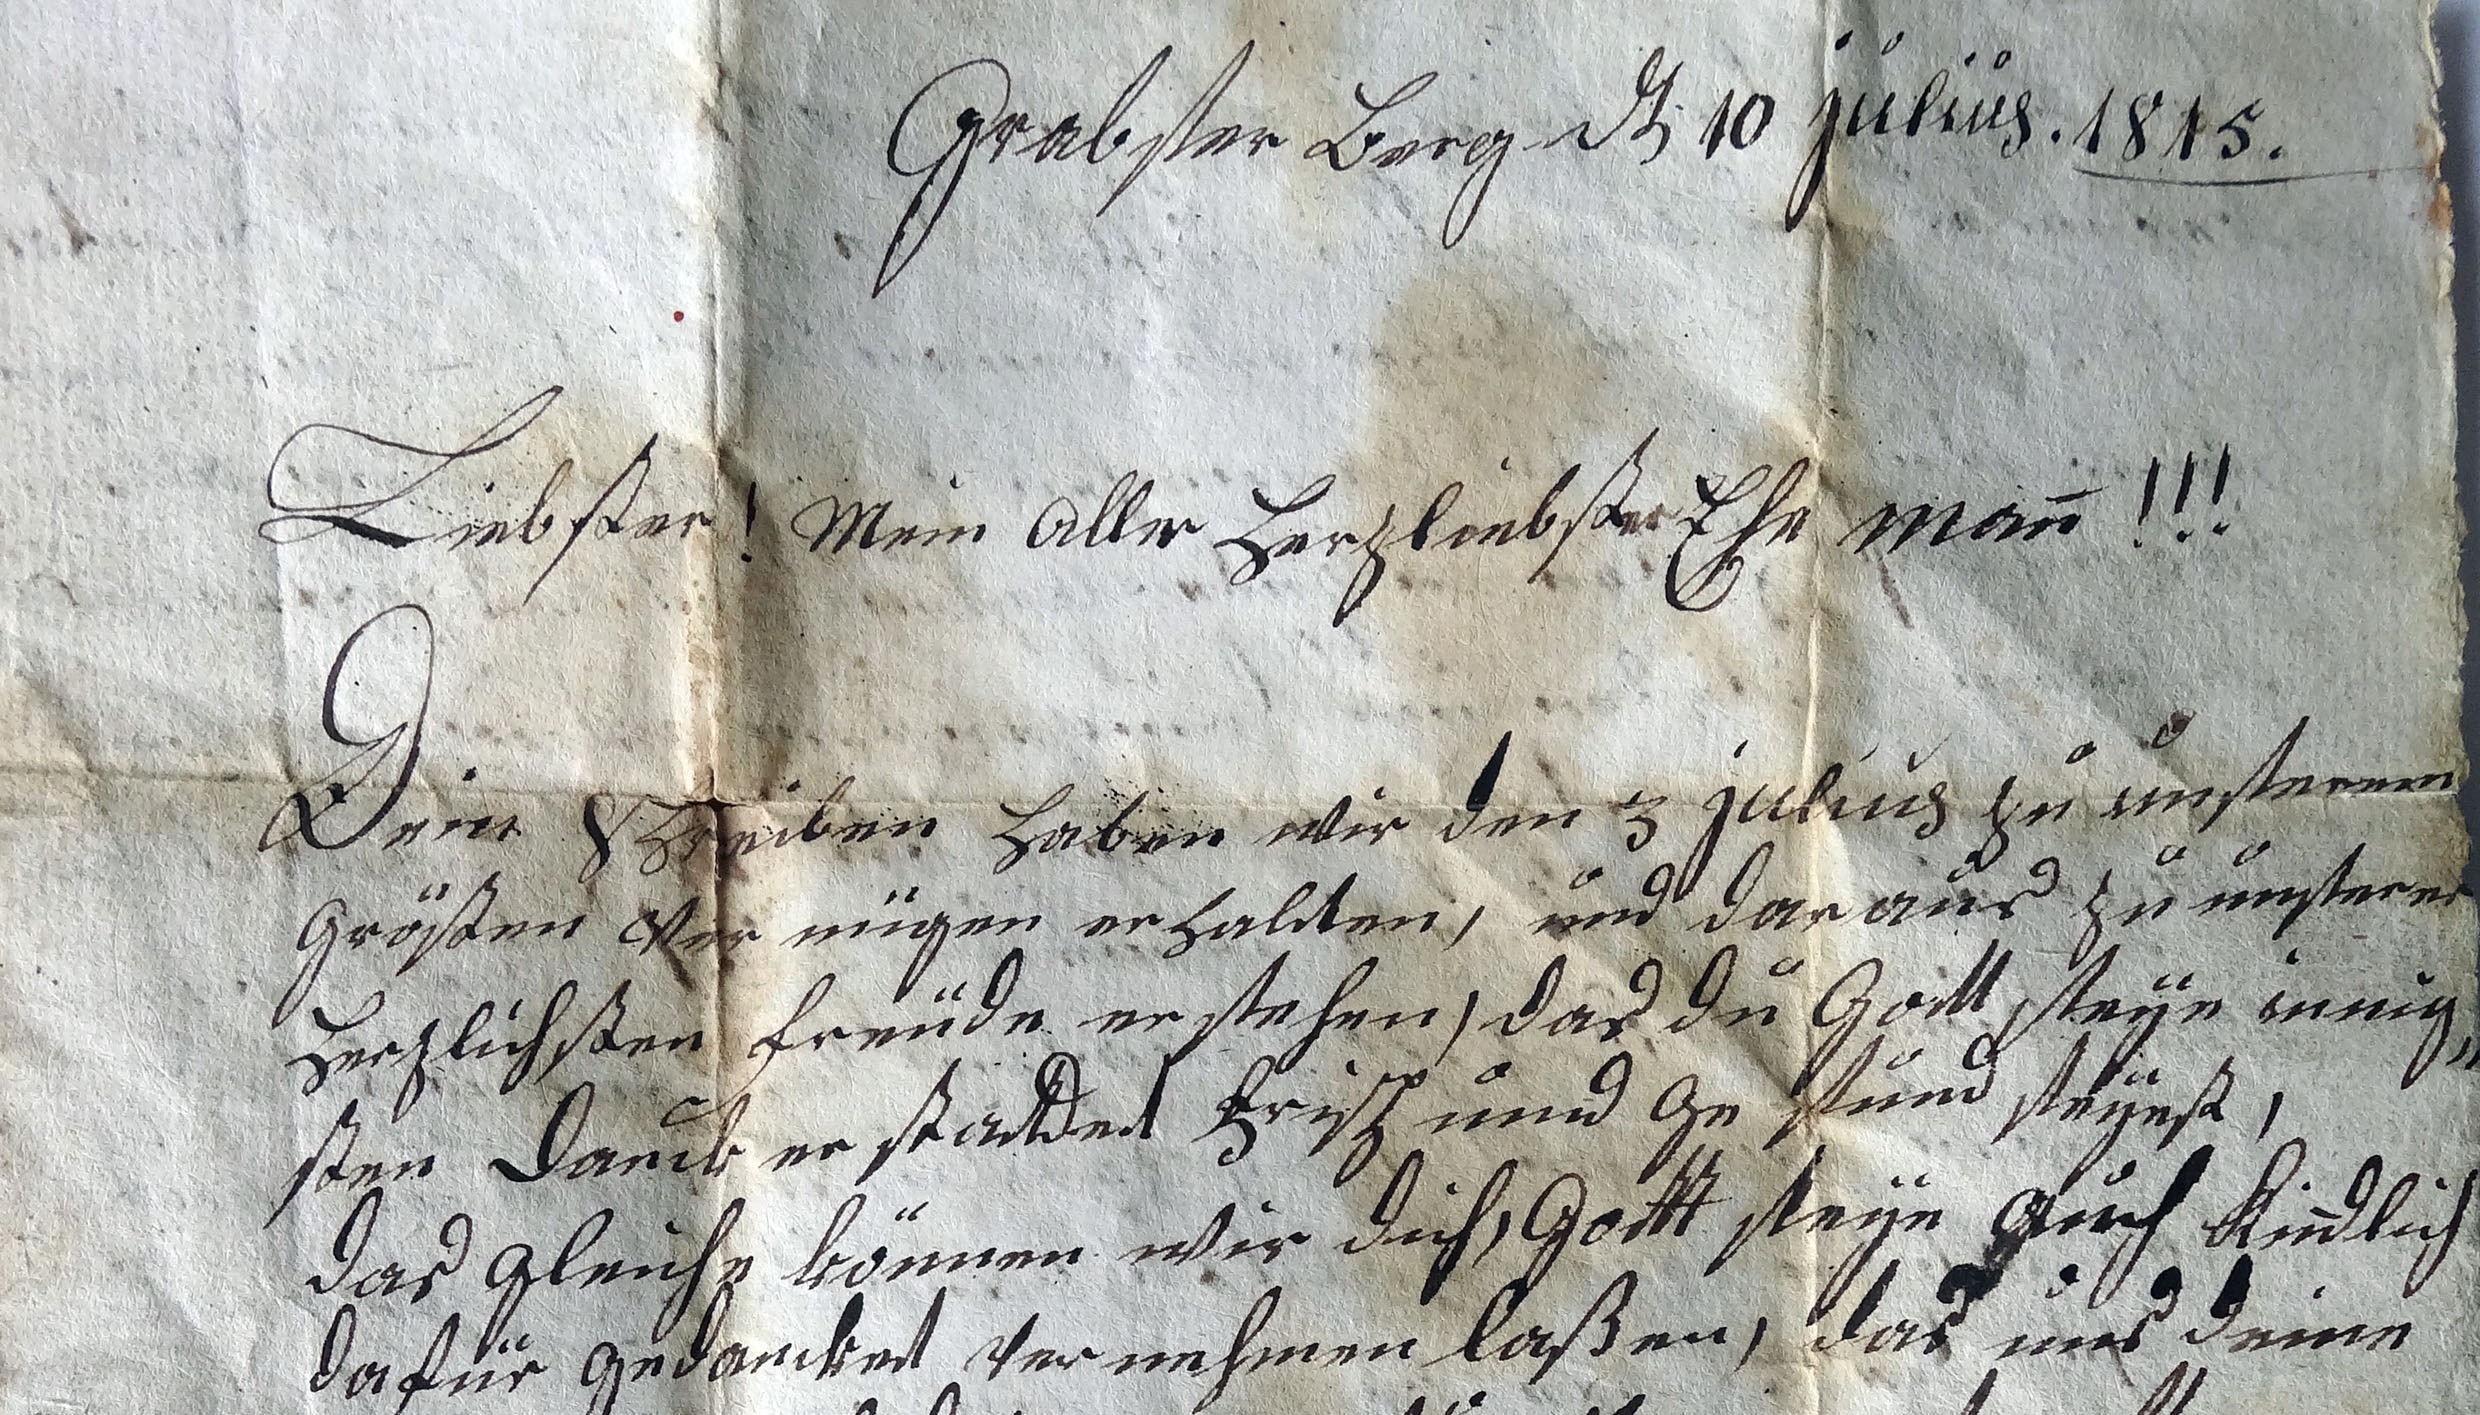 Grabster Berg dt 10 julius. 1815.
Liebster! Mein aller Herzliebster Ehe mañ !!!
Dein Schreiben haben wir den 3 julius zu unsterem
größten Ver nügen erhalten, und daraus zu unsterer
Herzlichsten freüde erstehen, das du Gott steÿe innig„
sten Danck er stattet frisch und ge stund steÿest,
das gleiche können wir dich, Gott steÿe auch kindlich
dafür gedancket vernehmen laßen, das uns deine